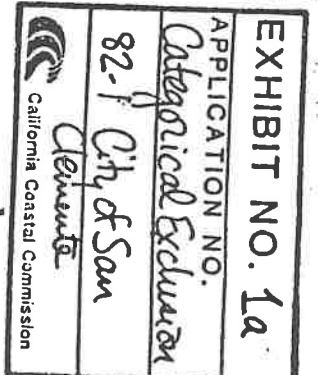 EXHIBIT NO. 1a
APPLICATION NO.
Categorical Exclusion
82-1 City of San
Clemente
California Coastal Commission